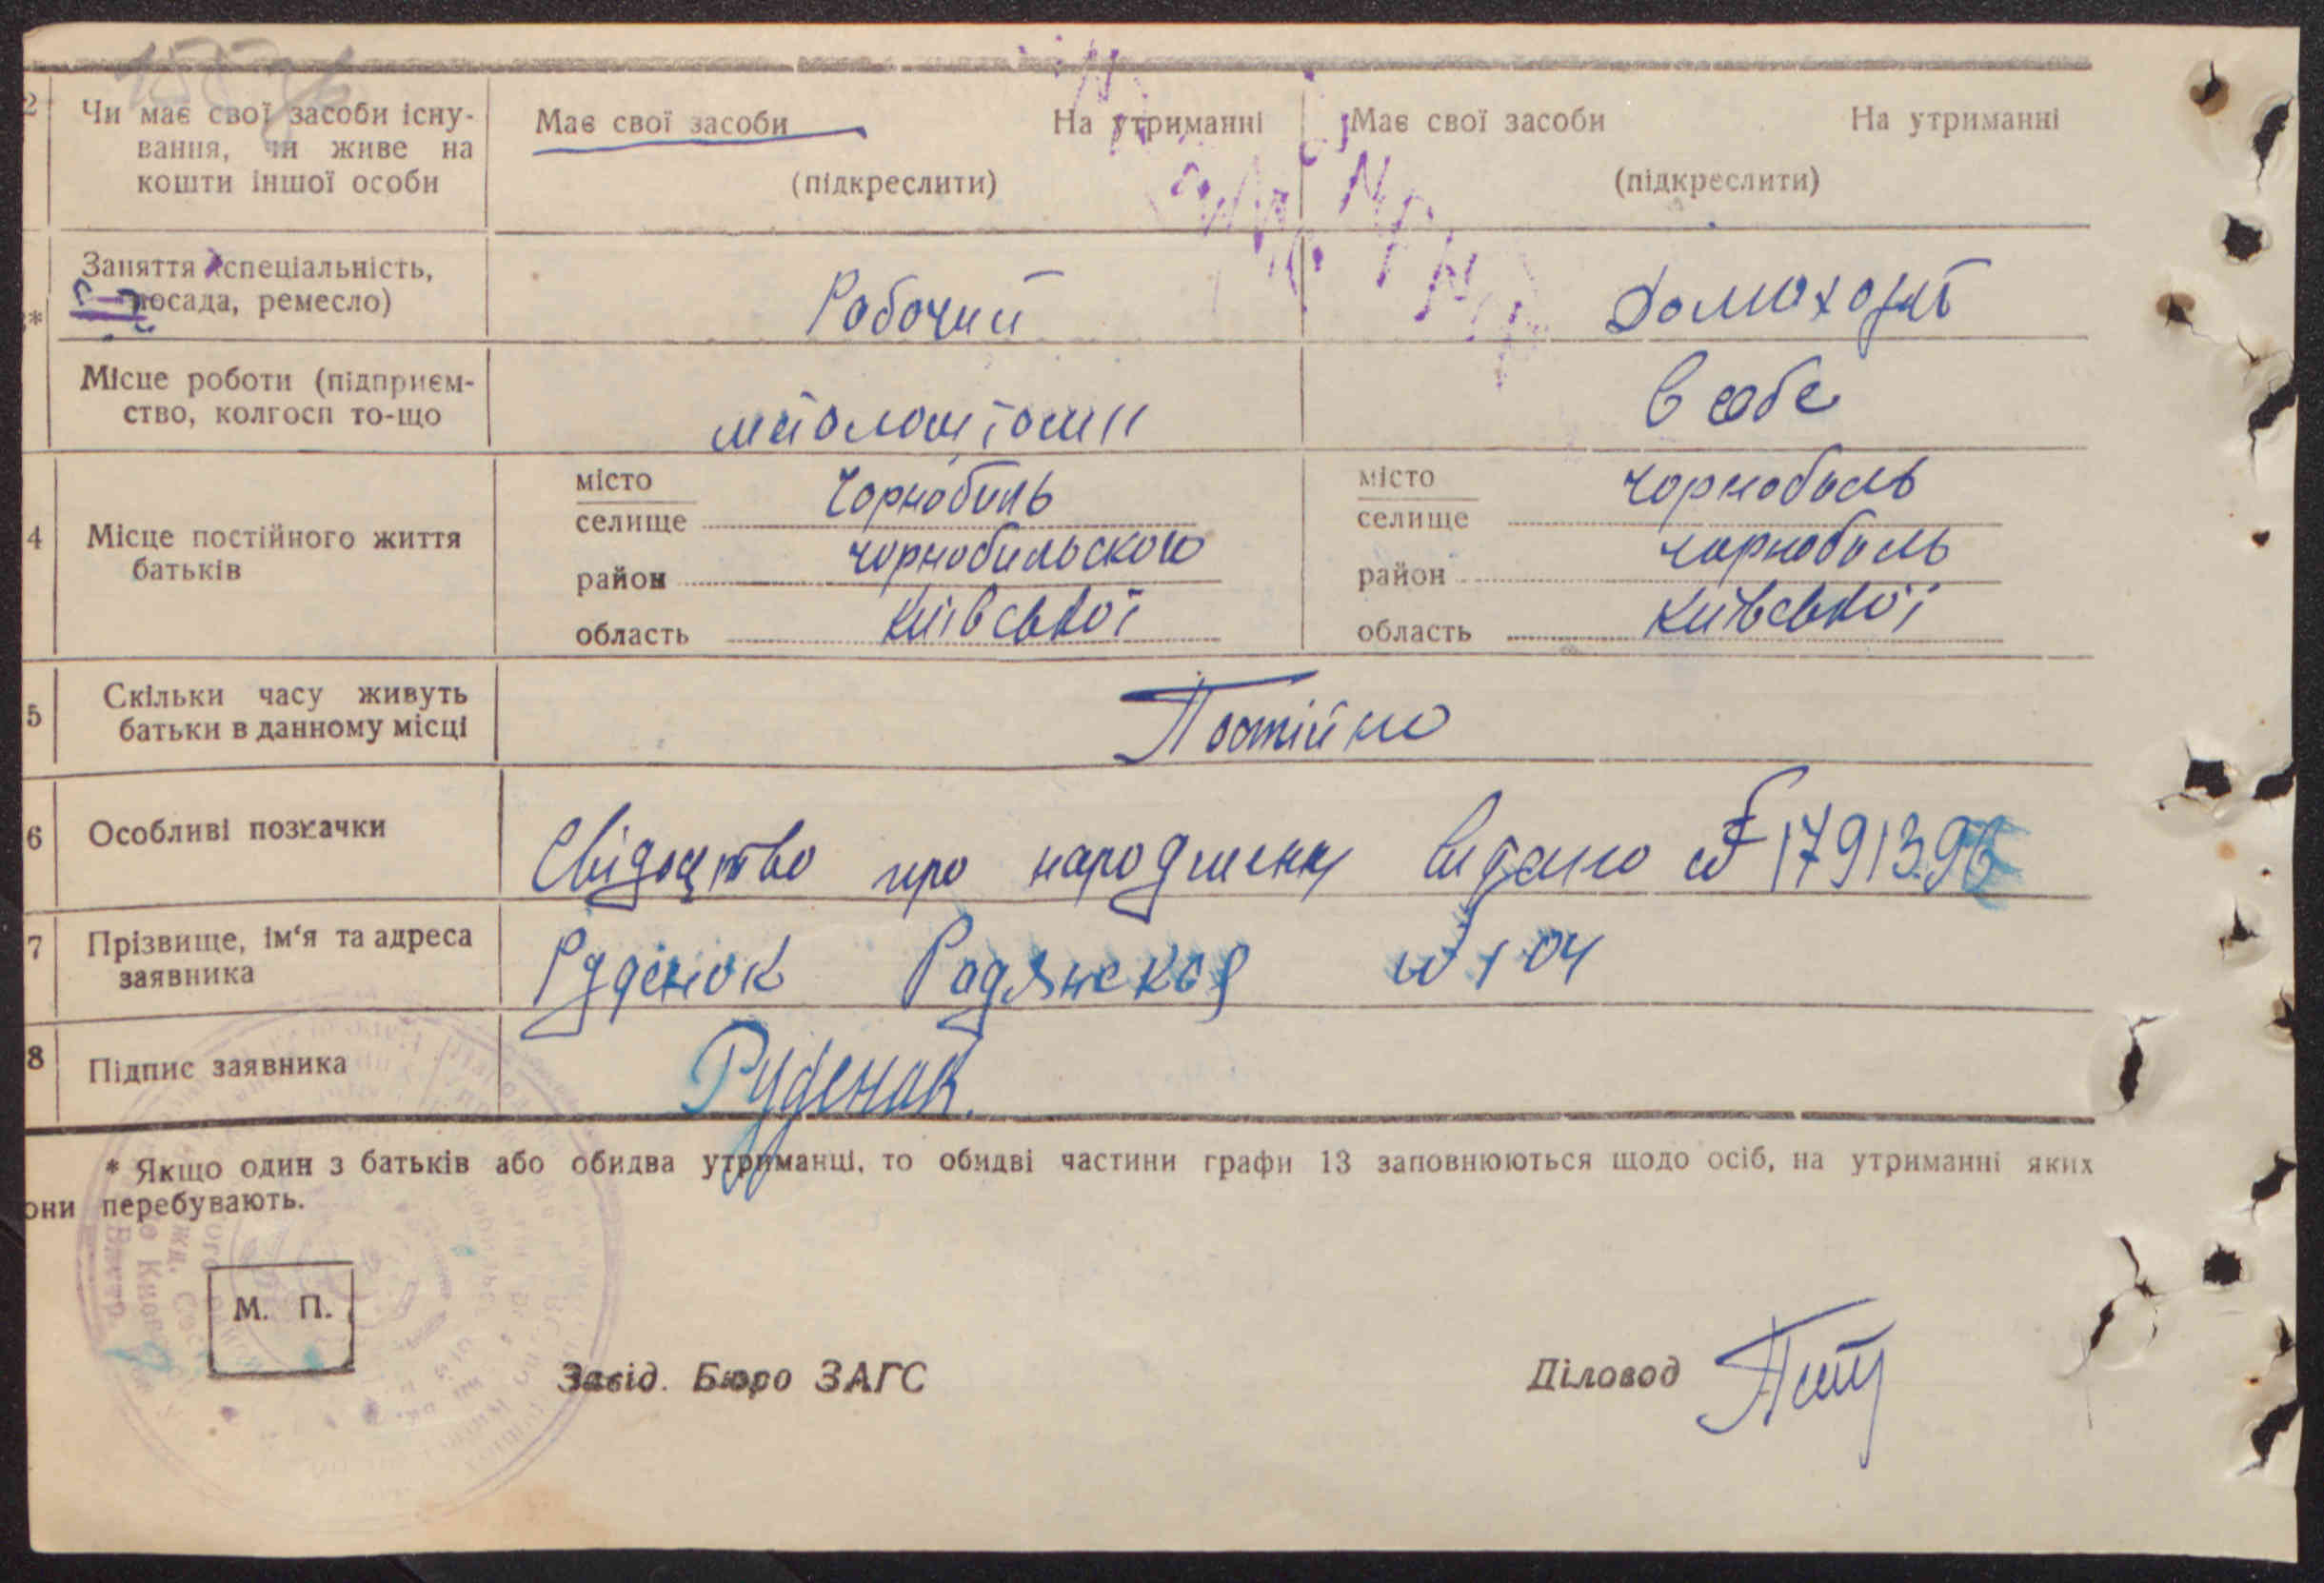 2 Чи має свої засоби існу- Має свої засоби На утриманні Має свої засоби На утриманні
вання, чи живе на
кошти іншої особи (підкреслити) (підкреслити)
Заняття (спеціальність,
посада, ремесло) Робочий Домохозяй
* Місце роботи (підприєм-
ство, колгосп то-що в себе
4 Місце постійного життя батьків
місто Чорнобиль місто Чорнобиль
селище селище
район Чорнобильского район Чорнобиль
область Київської область Київської
5 Скільки часу живуть
батьки в данному місці Постійно
6 Особливі позначки Свідоцтво про народження видано № 179139
7 Прізвище, ім'я та адреса
заявника Руденок Радянская № 104
8 Підпис заявника Руденок.
* Якщо один з батьків або обидва утриманці, то обидві частини графи 13 заповнюються щодо осіб, на утриманні яких
они перебувають.
М. П.
Завід. Бюро ЗАГС Діловод